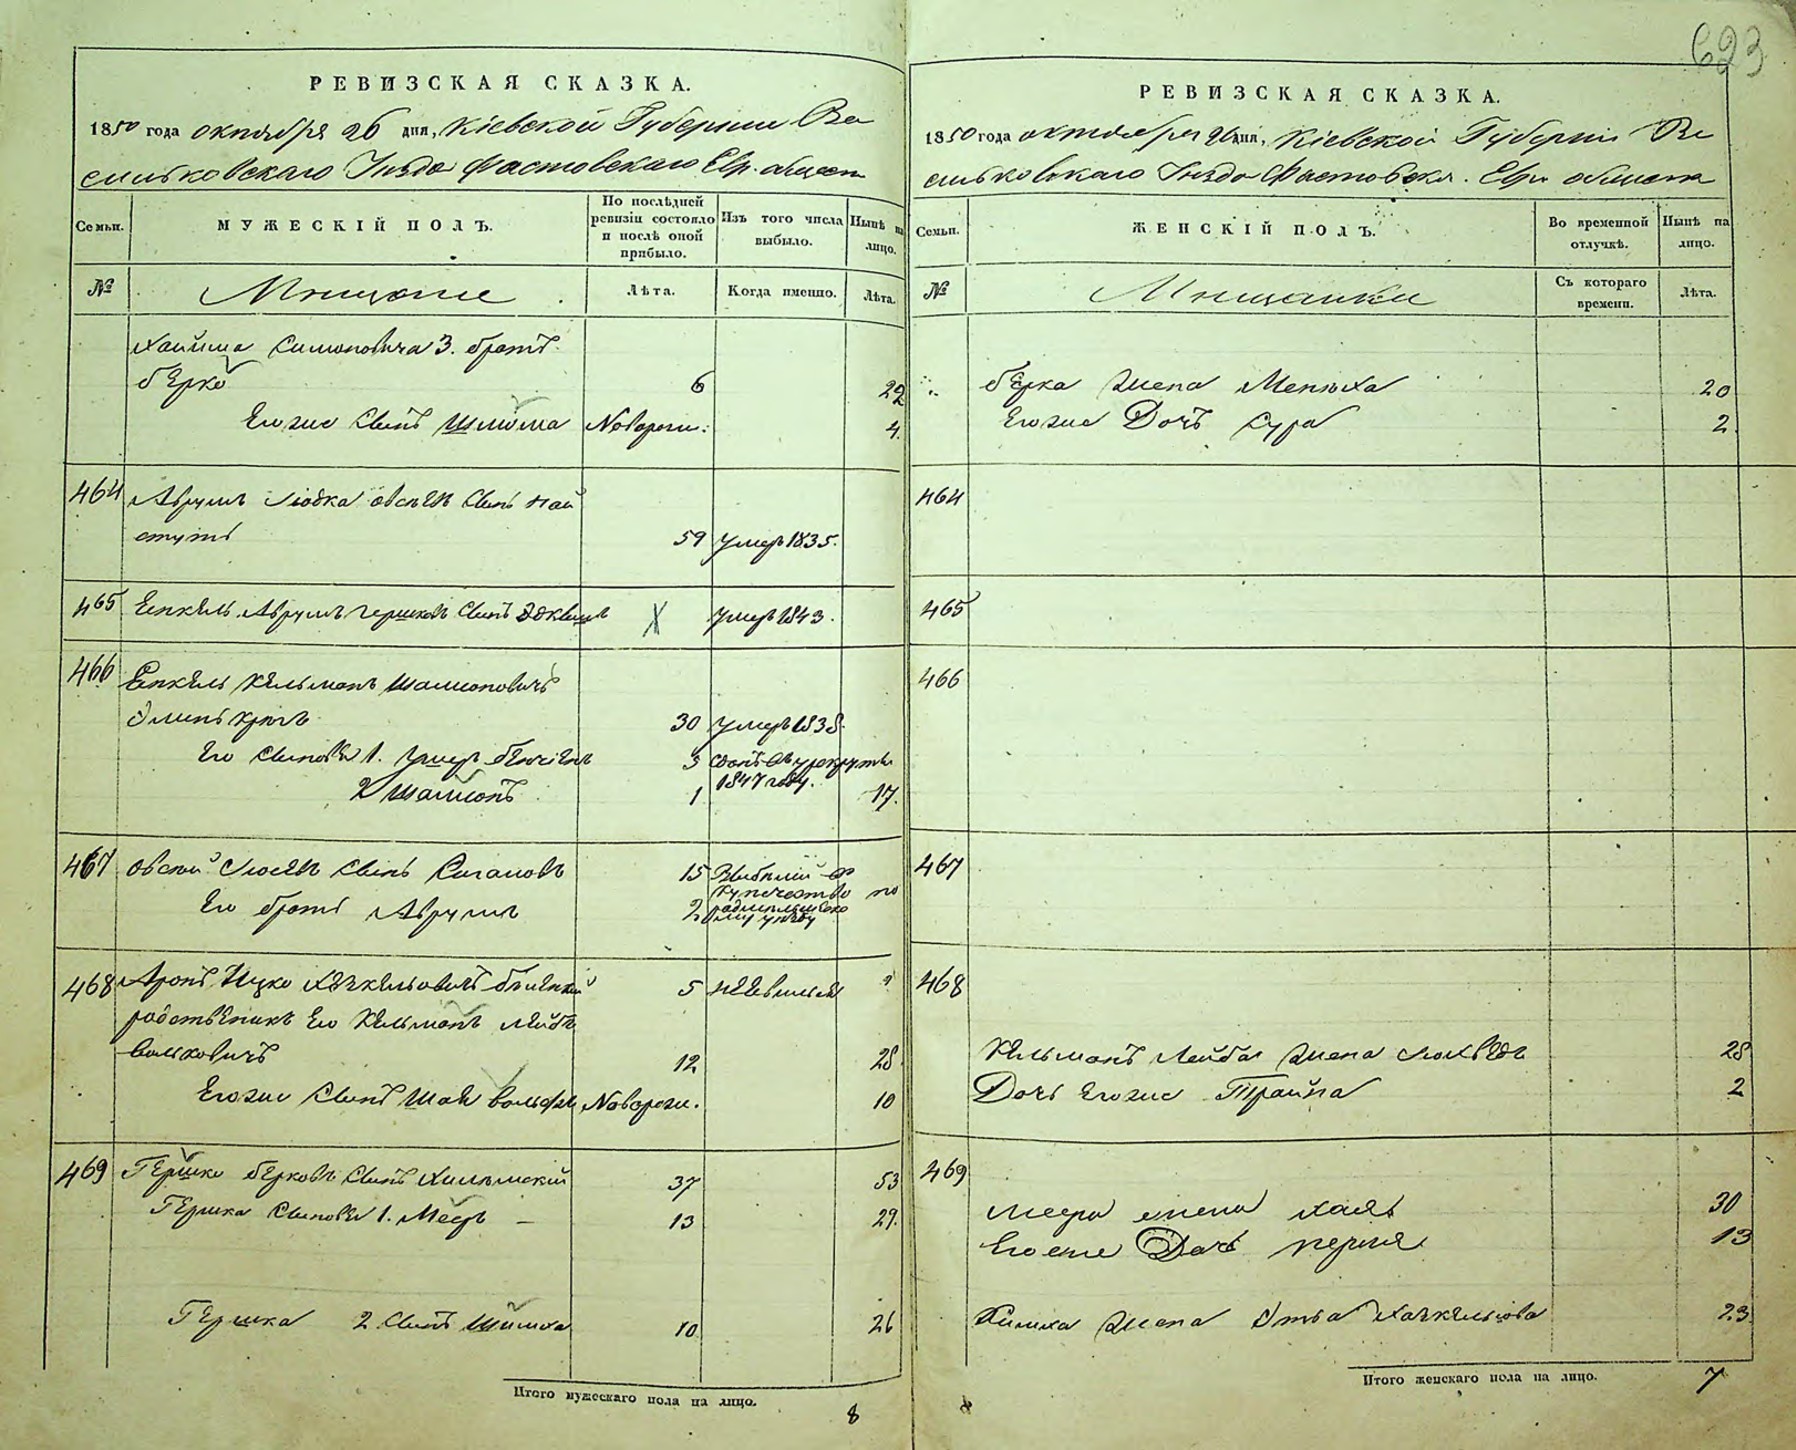 623
РЕВИЗСКАЯ СКАЗКА.
1850 года октября 26 дня, Кіевской Губерніи Ва
сильковскаго Уѣзда Фастовскаго Евр. общест
Семьи.
МУЖЕСКІЙ ПОЛЪ.
По послѣдней ревизіи состояло и послѣ оной прибыло.
Изъ того числа выбыло.
Нынѣ на лицо.
№
Мѣщане
Лѣта.
Когда именно.
Лѣта.
Хаима Симоновича 3. братъ
Берко 6 22
Его же Сынъ Шлиома Новорож: 4.
464 Аврумъ Сынъ
59 умеръ 1835.
465 Енкель Аврумъ Гершковъ Сынъ умеръ 1843.
466 Енкель Кельманъ Шаимоновичъ
30 умеръ 1838.
Его Сыновья 1. 3
1847 году.
2 Шаимонъ 1 17.
467 Овсей Сынъ 15
купечество по
Его братъ Аврумъ 2
468 Аронъ Ицко 5 неявился
родственикъ Его Кельманъ Лейбъ
Вольковичъ 12 28
Его же Сынъ Шая Вольфъ Новорож. 10
469 Гершко Берковъ Сынъ 37 53
Гершка Сыновья 1. Меер 13 29.
Гершка 2 Сынъ Шимха 10 26
Итого мужескаго пола на лицо. 8
РЕВИЗСКАЯ СКАЗКА.
1850 года октября 26 дня, Кіевской Губерніи Ва
сильковскаго Уѣзда Фастовскаг. Евр. общества
Семьи.
ЖЕНСКІЙ ПОЛЪ.
Во временной отлучкѣ.
Нынѣ на лицо.
№
Мѣщанки
Съ котораго времени.
Лѣта.
Берка жена Менюха 20
Его же Дочь Сура 2
464
465
466
467
468
Кельманъ Лейба жена 28
Дочь Его же Трайна 2
469
Меера жена Хая 30
Его же Дочь Перля 13
Симха жена Хаскельова 23
Итого женскаго пола на лицо. 7